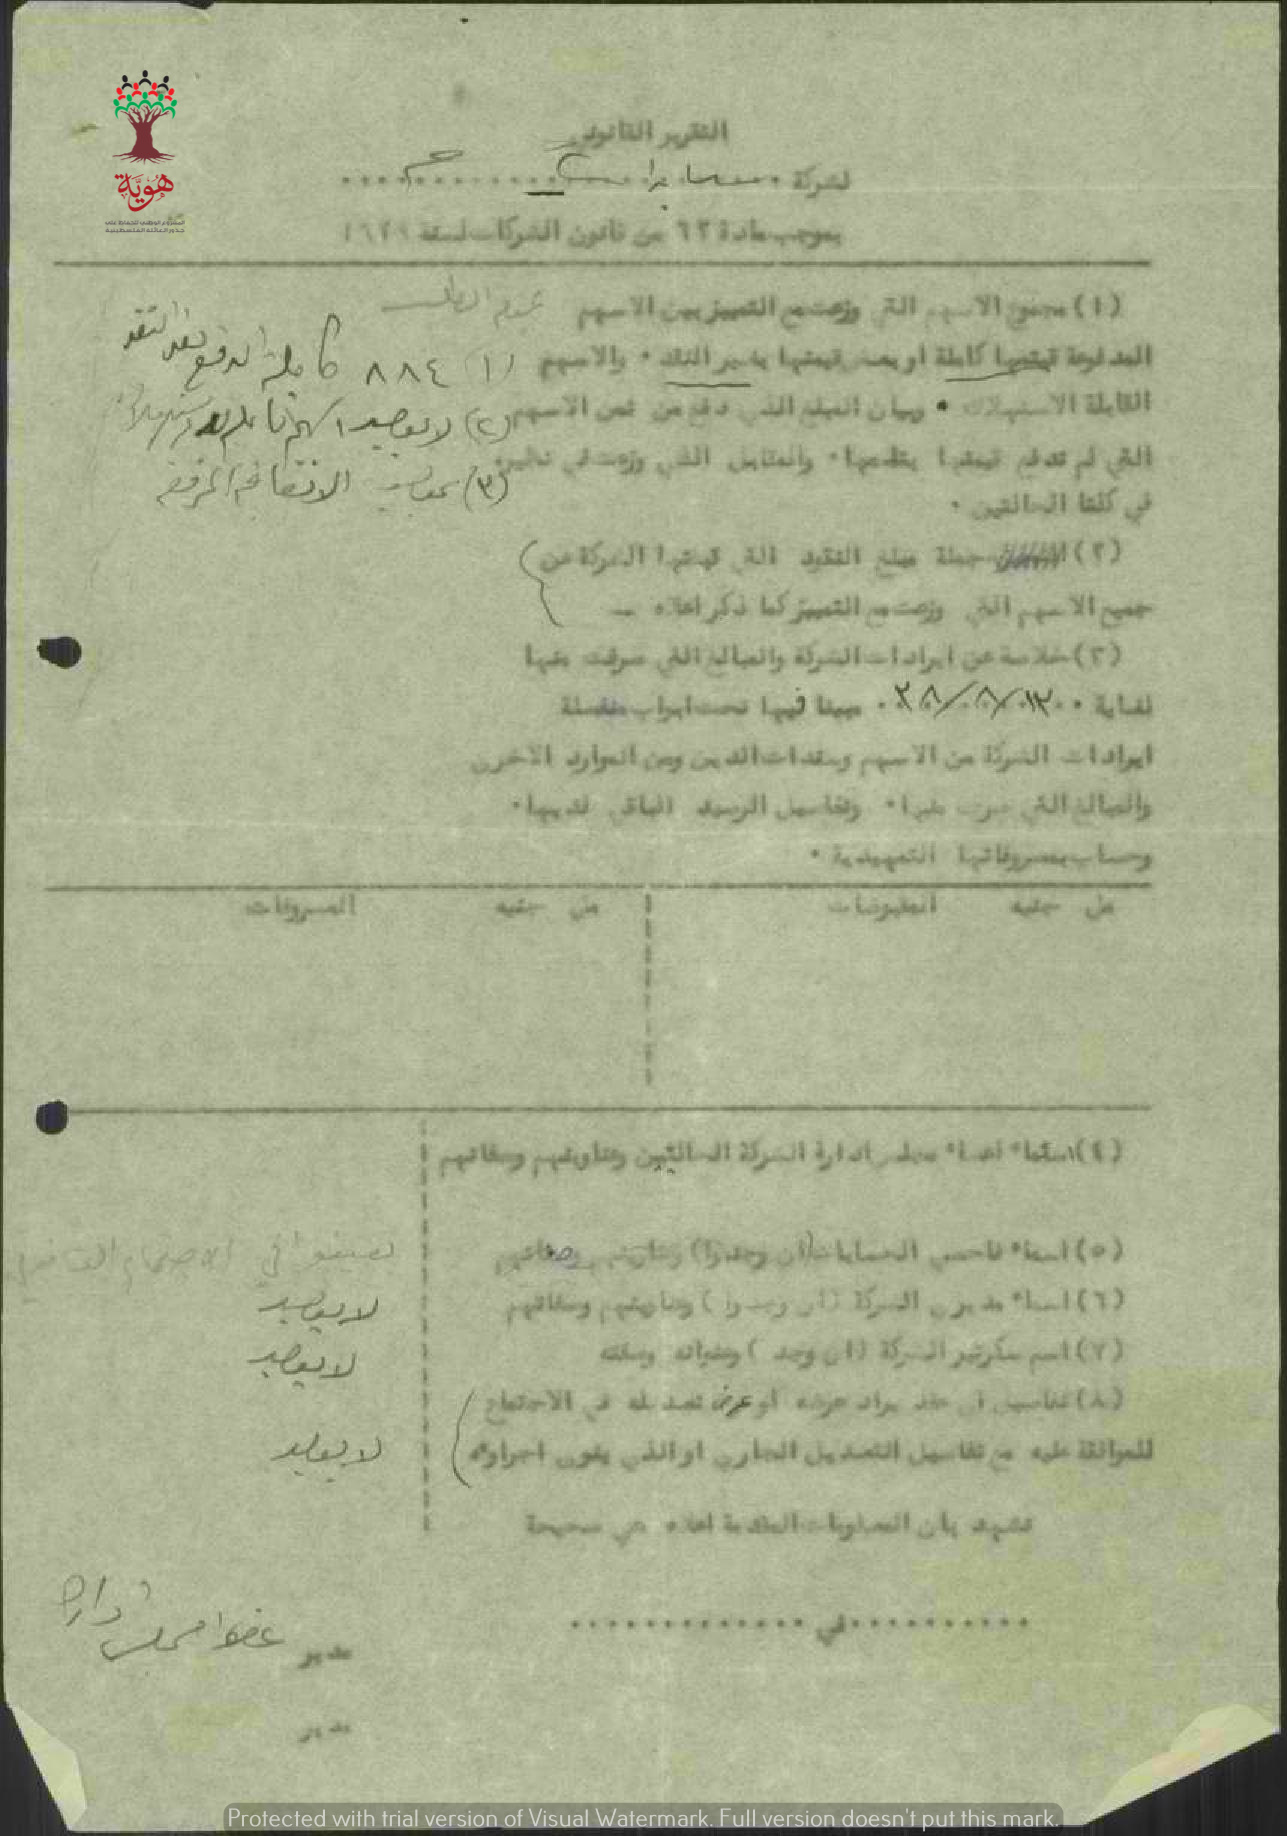 هوية
المشروع الوطني للحفاظ على
جذور العائلة الفلسطينية
التقرير القانوني
لشركة
بموجب مادة ٦٢ من قانون الشركات لسنة ١٩٢٩
(١) مجموع الاسهم التي وزعت مع التمييز بين الاسهم
المدفوعة قيمتها كاملة او بعض قيمتها بغير النقد • والاسهم
(١) ٨٨٤ كاملة الدفع نقد النقد
القابلة الاستهلاك • وبيان المبلغ الذي دفع من ثمن الاسهم
(٢) لا يوجد اسهم
التي لم تدفع قيمتها بتمامها • والمقابل الذي وزعت في نظيره
(٣) الاتفاقية المرفقة
في كلتا الحالتين •
(٢) جملة مبلغ النقود التي قبضتها الشركة عن
جميع الاسهم التي وزعت مع التمييز كما ذكر اعلاه —
(٣) خلاصة عن ايرادات الشركة والمبالغ التي صرفت منها
لغاية مبينا فيها تحت ابواب منفصلة
ايرادات الشركة من الاسهم وسندات الدين ومن الموارد الاخرى
والمبالغ التي صرفت منها • وتفاصيل الرصيد الباقي لديها •
وحساب مصروفاتها التمهيدية •
مل جنيه المقبوضات مل جنيه المصروفات
(٤) اسماء اعضاء مجلس ادارة الشركة الحاليين وعناوينهم وصفاتهم
(٥) اسماء فاحصي الحسابات (ان وجدوا) وعناوينهم وصفاتهم
(٦) اسماء مديري الشركة (ان وجدوا) وعناوينهم وصفاتهم لا يوجد
(٧) اسم سكرتير الشركة (ان وجد) وعنوانه وصفته لا يوجد
(٨) تفاصيل اي عقد يراد عرضه او عرض تعديله في الاجتماع
للموافقة عليه مع تفاصيل التعديل الجاري او الذي ينوى اجراؤه لا يوجد
نشهد بان المعلومات المقدمة اعلاه هي صحيحة
في
مدير عضوا مجلس ادارة
مدير
Protected with trial version of Visual Watermark. Full version doesn't put this mark.